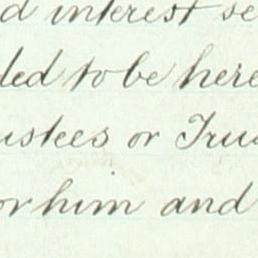 d interest se
ded to be here
ustees or Trus
or him and